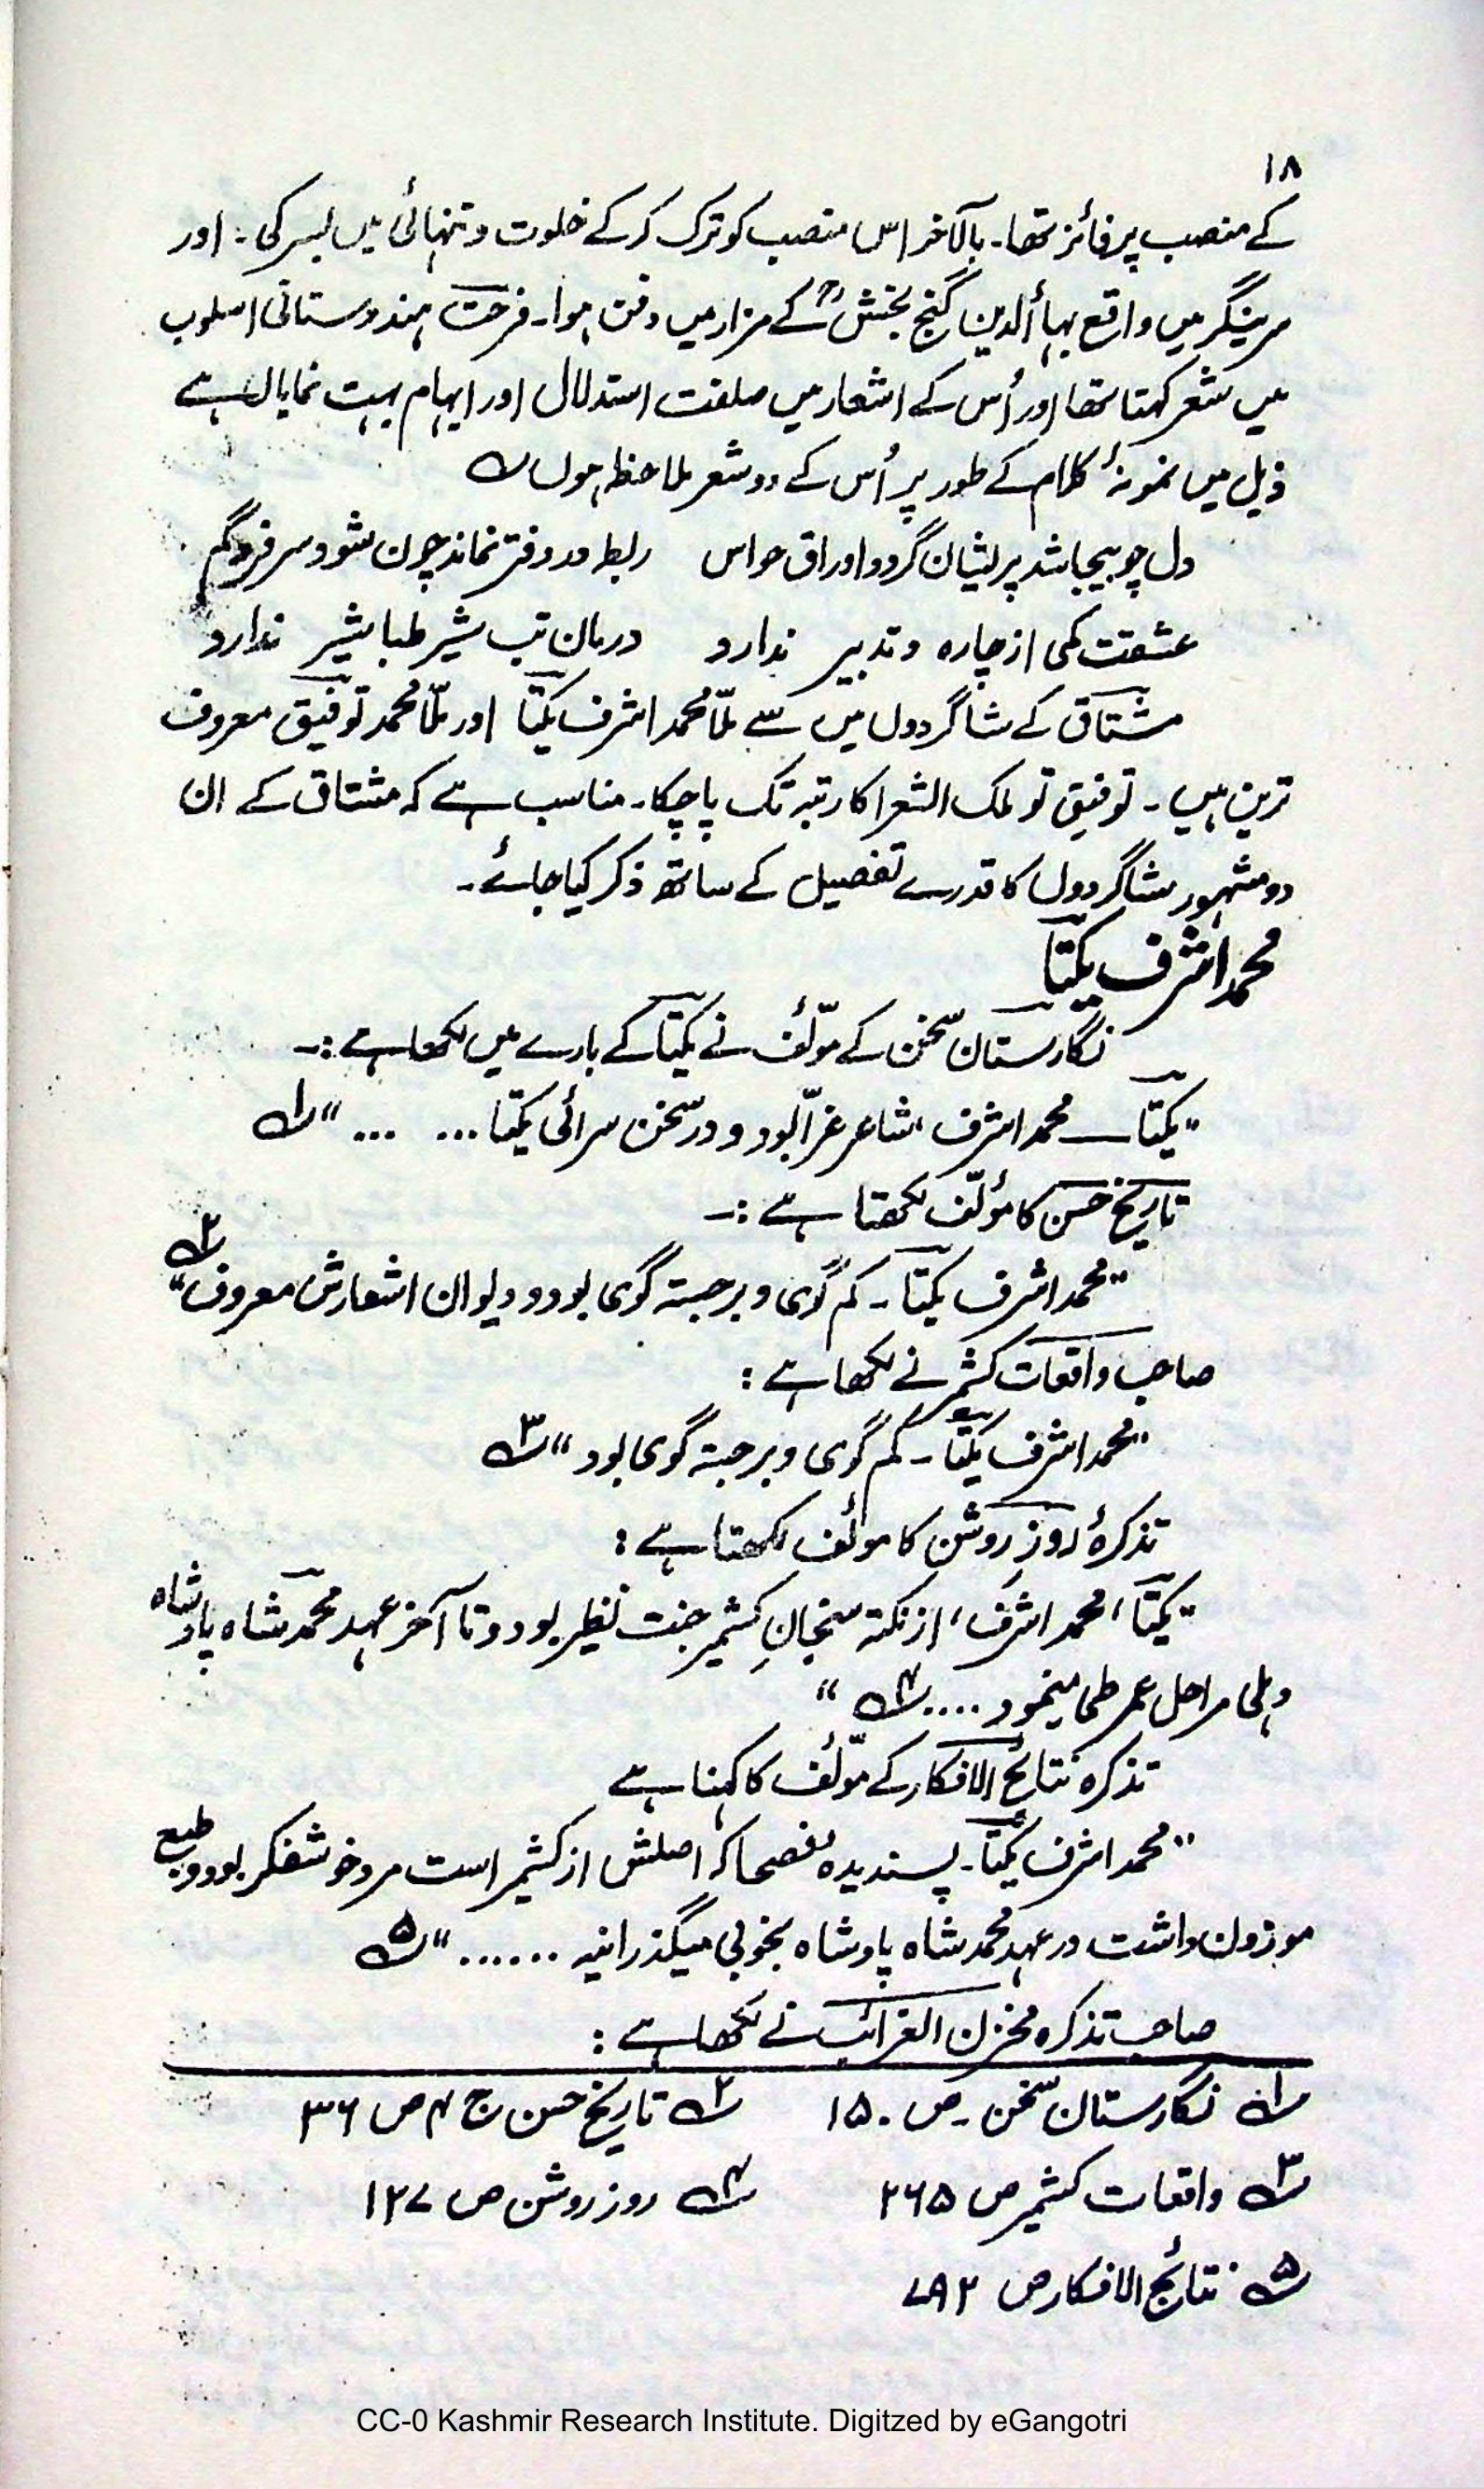 ۱۸
کے منصب پر فائز تھا۔ بالآخر اس منصب کو ترک کر کے خلوت و تنہائی میں بسر کی۔ اور
سرینگر میں واقع بہاأالدین گنج بخشؒ کے مزار میں دفن ہوا۔ فرحت ہندوستانی اسلوب
میں شعر کہتا تھا اور اُس کے اشعار میں صنعت استدلال اور ایہام بہت نمایاں ہے
ذیل میں نمونۂ کلام کے طور پر اُس کے دو شعر ملاحظہ ہوں
دل چو بیجا شد پریشان گردد اوراق حواس ربط در دفتر نماند چون شود سر فرد گم
عشقت کمی از چارہ و تدبیر ندارد درمان تب شیر طباشیر ندارد
مشتاق کے شاگردوں میں سے ملّا محمد اشرف یکتا اور ملّا محمد توفیق معروف
ترین ہیں۔ توفیق تو ملک الشعرا کا رتبہ تک پا چکا۔ مناسب ہے کہ مشتاق کے ان
دو مشہور شاگردوں کا قدرے تفصیل کے ساتھ ذکر کیا جائے۔
محمد اشرف یکتا
نگارستان سخن کے مؤلّف نے یکتا کے بارے میں لکھا ہے :۔
"یکتا — محمد اشرف، شاعر غرّا بود و در سخن سرائی یکتا ... ... ..." ۱
تاریخ حسن کا مؤلّف لکھتا ہے :۔
"محمد اشرف یکتا۔ کم گوی و برجستہ گوی بود و دیوان اشعارش معروف" ۲
صاحب واقعات کشمیر نے لکھا ہے :
"محمد اشرف یکتا۔ کم گوی و برجستہ گوی بود" ۳
تذکرۂ روز روشن کا مولٔف لکھتا ہے :
"یکتا، محمد اشرف، از نکتہ سنجانِ کشمیر جنت نظیر بود و تا آخر عہد محمد شاہ پادشاہ
دہلی مراحل عمر طی مینمود .... ۴ "
تذکرہ نتائج الافکار کے مؤلّف کا کہنا ہے
"محمد اشرف یکتا۔ پسندیدہ فصحا کہ اصلش از کشمیر است مرد خوشفکر بود و طبع
موزون داشت در عہد محمد شاہ پادشاہ بخوبی میگذرانید ......" ۵
صاحب تذکرہ مخزن الغرائب نے لکھا ہے :
۱ نگارستان سخن ۔ ص ۱۵۰ ۲ تاریخ حسن ج ۴ ص ۳۶
۳ واقعات کشمیر ص ۲۶۵ ۴ روز روشن ص ۱۲۷
۵ نتائج الافکار ص ۷۹۲
CC-0 Kashmir Research Institute. Digitzed by eGangotri